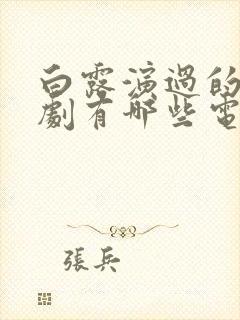 白露演過的
劇有哪些電
張兵